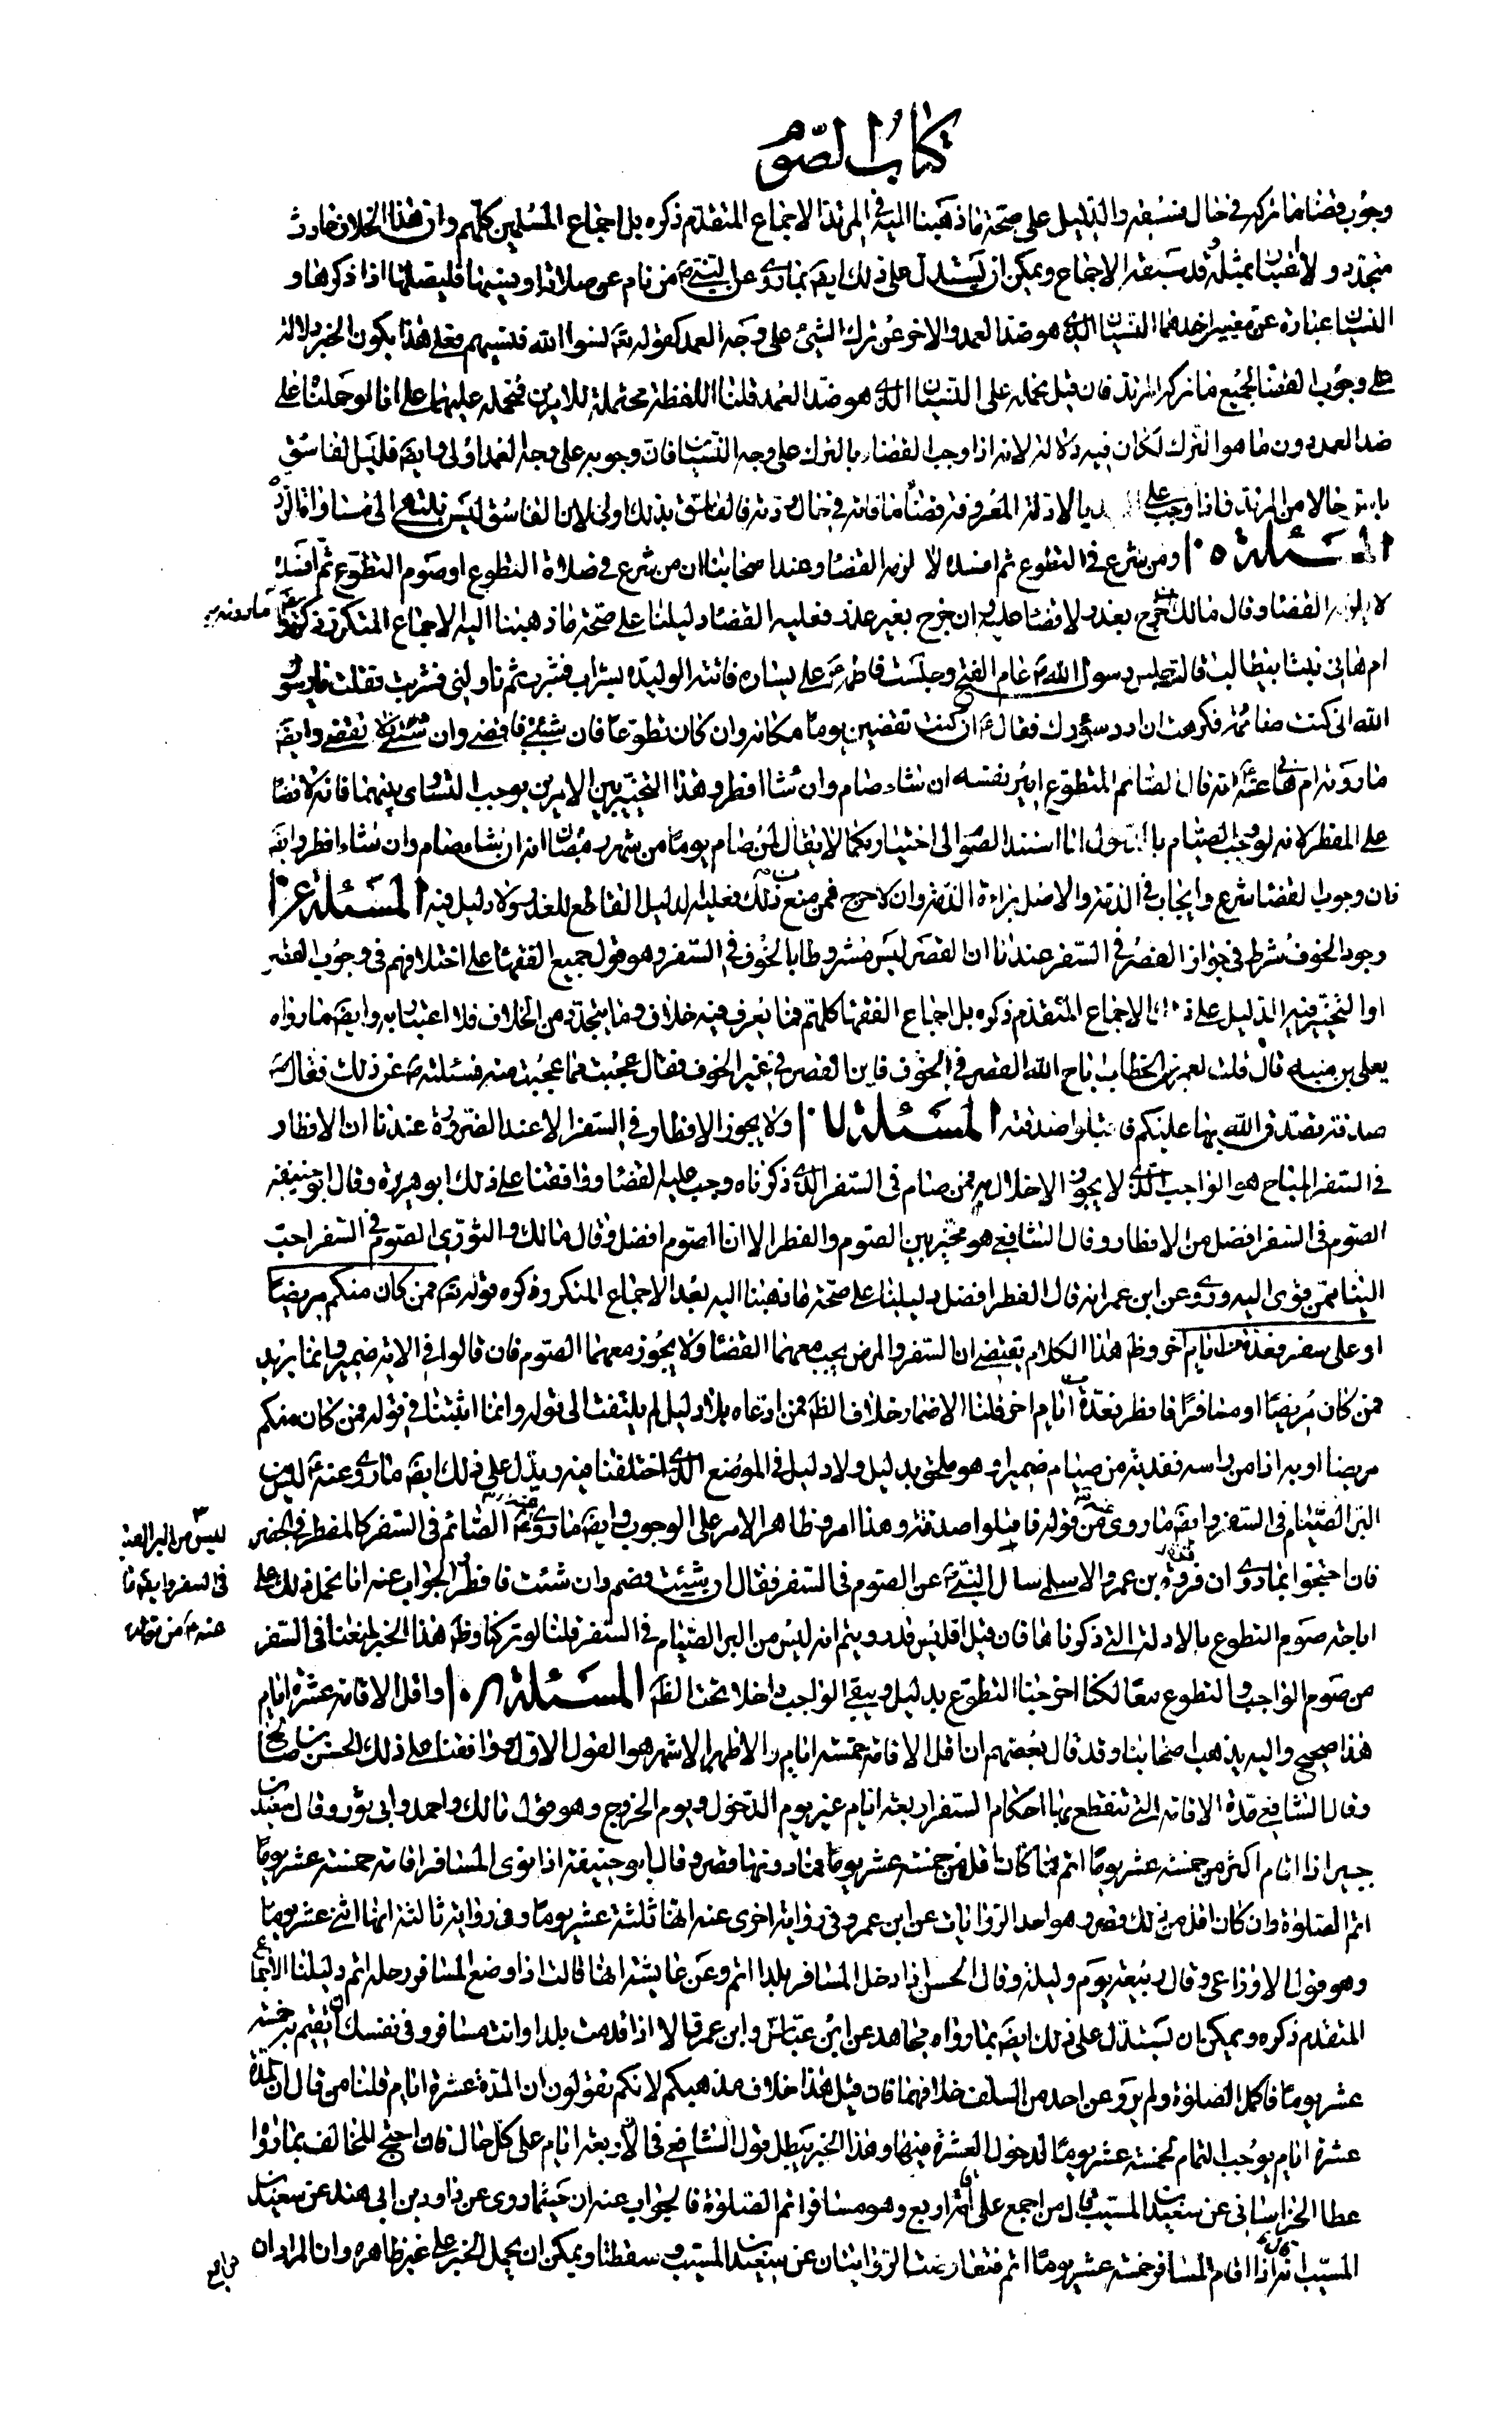 كتاب الصوم
وجوب قضا ما تركه في حال فسقه والدليل على صحة ما ذهبنا اليه في المرتد الاجماع المتقدم ذكره بل اجماع المسلمين كلهم وان هذا الخلاف حادث
متجدد ولا اعتبار بمثله وقد سبقه الاجماع ويمكن ان يستدل على ذلك ايضَ بما روى عن النبي صَ من نام عن صلاة او نسيها فليصلها اذا ذكرها و
النسيان عبارة عن معنيين احدهما النسيان الذي هو ضد العمد والاخر عن ترك الشئ على وجه العمد كقوله تعَ نسوا الله فنسيهم فعلى هذا يكون الخبر دلالة
على وجوب القضا لجميع ما تركه المرتد فان قيل نحمله على النسيان الذي هو ضد العمد قلنا اللفظة محتملة للامرين فنحمله عليهما على انا لو حملناه على
ضد العمد دون ما هو الترك لكان فيه دلالة لانه اذا وجب القضاء بالترك على وجه النسيان فان وجوبه على وجه العمد اولى وايضَ فليس الفاسق
باسوء حالا من المرتد فاذا وجب على المرتد بالادلة المعروفة قضا ما فاته في حال ردته فالفاسق بذلك اولى لان الفاسق ليس ينتهي الى مساواة المرتد
المسئلة ١٠٥ ومن شرع في التطوع ثم افسده لا لزمه القضا وعند اصحابنا ان من شرع في صلاة التطوع او صوم التطوع ثم افسده
لا يلزمه القضا وقال مالك ان خرج بعذر لا قضا عليه وان خرج بغير عذر فعليه القضا دليلنا على صحة ما ذهبنا اليه الاجماع المتكرر ذكره وايضَ ما روته
ام هانى بنت ابيطالب قالت جلس رسول الله صَ عام الفتح وجلست فاطمة عَ على يساره فاتته الوليدة بشراب فشرب ثم ناولنى فشربت فقلت يا رسول
الله انى كنت صائمة فكرهت ان ارد سؤرك فقال عَ ان كنت تقضين يوما مكانه وان كان تطوعا فان شئت فاقضى وان شئت فلا تقضى وايضَ
ما روته ام هانى عنه عَ انه قال الصائم المتطوع امير نفسه ان شاء صام وان شا افطر وهذا التخيير بين الامرين يوجب التساوى بينهما فانه لا قضا
على المفطر لانه لو وجب الصيام با لدخول لما اسند الصوم الى اختياره كما لا يقال لمن صام يوما من شهر رمضان انه ان شاء صام وان شاء افطر وايضَ
فان وجوب القضا شرع وايجاب في الذمة والاصل براءة الذمة وان لا حرج فمن منع من ذلك فعليه الدليل القاطع للعذر ولا دليل فيه المسئلة ١٠٦
وجود الخوف شرط في جواز القصر في السفر عندنا ان القصر ليس مشروطا بالخوف في السفر وهو قول جميع الفقها على اختلافهم في وجوب القصر
او التخيير فيه الدليل على ذلك الاجماع المتقدم ذكره بل اجماع الفقها كلهم فما يعرف فيه خلاف وما يتجدد من الخلاف فلا اعتبار به وايضَ ما رواه
يعلى بن منيه قال قلت لعمر بن الخطاب اباح الله القصر في الخوف فاين القصر في غير الخوف فقال عجبت مما عجبت منه فسئلته صَ عن ذلك فقال صَ
صدقة تصدق الله بها عليكم فاقبلوا صدقته المسئلة ١٠٧ ولا يجوز الافطار في السفر الا عند الضرورة عندنا ان الافطار
في السفر المباح هو الواجب الذي لا يجوز الاخلال به فمن صام في السفر الذي ذكرناه وجب عليه القضا ووافقنا على ذلك ابو هريرة وقال ابو حنيفة
الصوم في السفر افضل من الافطار وقال الشافعي هو مخير بين الصوم والفطر الا ان الصوم افضل وقال مالك والثورى الصوم في السفر احب
الينا ممن قوى اليه وروى عن ابن عمر انه قال الفطر افضل دليلنا على صحة ما ذهبنا اليه بعد الاجماع المتكرر ذكره قوله تعَ فمن كان منكم مريضا
او على سفر فعدة من ايام اخر وظَ هذا الكلام يقتضى ان السفر والمرض يجب معهما القضا ولا يجوز معهما الصوم فان قالوا في الاية ضمير وانما يريد
فمن كان مريضا او مسافرا فافطر فعدة من ايام اخر قلنا الاضمار خلاف الظَ فمن ادعاه بلا دليل لم يلتفت الى قوله وانما اثبتنا في قوله فمن كان منكم
مريضا او به اذا من راسه ففدية من صيام ضميرا وهو ملحق بدليل ولا دليل في الموضع الذي اختلفنا فيه ويدل على ذلك ايضَ ما روى عنه عَ ليس من
البر الصيام في السفر وايضَ ما روى عنه من قوله فاقبلوا صدقته وهذا امر وظاهر الامر على الوجوب وايضَ ما روى عنه عَ الصائم في السفر كالمفطر في الحضر
ليس من البر الصيا
في السفر وايضَ ما
عنه عَ من قوله
فان احتجوا بما روى ان فروة بن عمرو الاسلمى سال النبي صَ عن الصوم في السفر فقال ان شئت فصم وان شئت فافطر الجواب عنه انا نحمل ذلك على
اباحة صوم التطوع بالادلة التي ذكرناها فان قيل افليس قد رويتم انه ليس من البر الصيام في السفر قلنا لو تركنا وظَ هذا الخبر لمنعنا في السفر
من صوم الواجب والتطوع معا لكنا اخرجنا التطوع بدليل ويبقى الواجب داخلا تحت الظَ المسئلة ١٠٨ واقل الاقامة عشرة ايام
هذا صحيح واليه يذهب اصحابنا وقد قال بعضهم ان اقل الاقامة خمسة ايام والاظهر الاشهر هو القول الاول ووافقنا على ذلك الحسن بن صالح
وقال الشافعي مدة الاقامة التي تنقطع بها احكام السفر اربعة ايام غير يوم الدخول ويوم الخروج وهو قول مالك واحمد وابى ثور وقال سعيد بن
جبير اذا اقام اكثر من خمسة عشر يوما اتم فما كان اقل من خمسة عشر يوما فما دونها قصر وقال ابو حنيفة اذا نوى المسافر اقامة خمسة عشر يوما
اتم الصلوة وان كان اقل من ذلك قصر وهو احد الروايات عن ابن عمر وفى رواية اخرى عنه انها ثلثة عشر يوما وفى رواية ثالثة انها اثنى عشر يوما
وهو قول الاوزاعى وقال ربيعة يوم وليلة وقال الحسن اذا دخل المسافر بلدا اتم وعن عايشة انها قالت اذا وضع المسافر رحله اتم دليلنا الاجماع
المتقدم ذكره ويمكن ان يستدل على ذلك ايضَ بما رواه مجاهد عن ابن عباس وابن عمر قالا اذا قدمت بلدا وانت مسافر وفى نفسك ان تقيم به خمسة
عشر يوما فاكمل الصلوة ولم يرو عن احد من السلف خلافهما فان قيل هذا خلاف مذهبكم لانكم تقولون ان المدة عشرة ايام قلنا من قال ان المدة
عشرة ايام يوجب التمام لخمسة عشر يوما لدخول العشرة فيها وهذا الخبر يبطل قول الشافعي في الاربعة ايام على كل حال فان احتج المخالف بما رواه
عطا الخراسانى عن سعيد بن المسيب قال من اجمع على اقامة اربع وهو مسافر اتم الصلوة فالجواب عنه ان خبثما روى عن داود بن ابى هند عن سعيد بن
المسيب انه قال اذا اقام المسافر خمسة عشر يوما اتم فتعارضت الروايتان عن سعيد بن المسيب وسقطتا ويمكن ان يحمل الخبر على غير ظاهره وان المراد ان